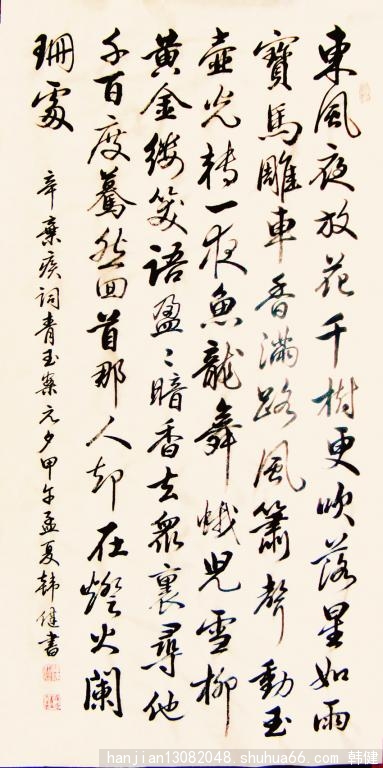 東風夜放花千樹更吹落星如雨
寶馬雕車香滿路風簫聲動玉
壺光轉一夜魚龍舞蛾兒雪柳
黃金縷笑語盈〻暗香去眾裏尋他
千百度驀然回首那人却在燈火闌
珊處
辛棄疾詞青玉案元夕甲午孟夏韩健書
hanjian13082048.shuhua66.com 韩健